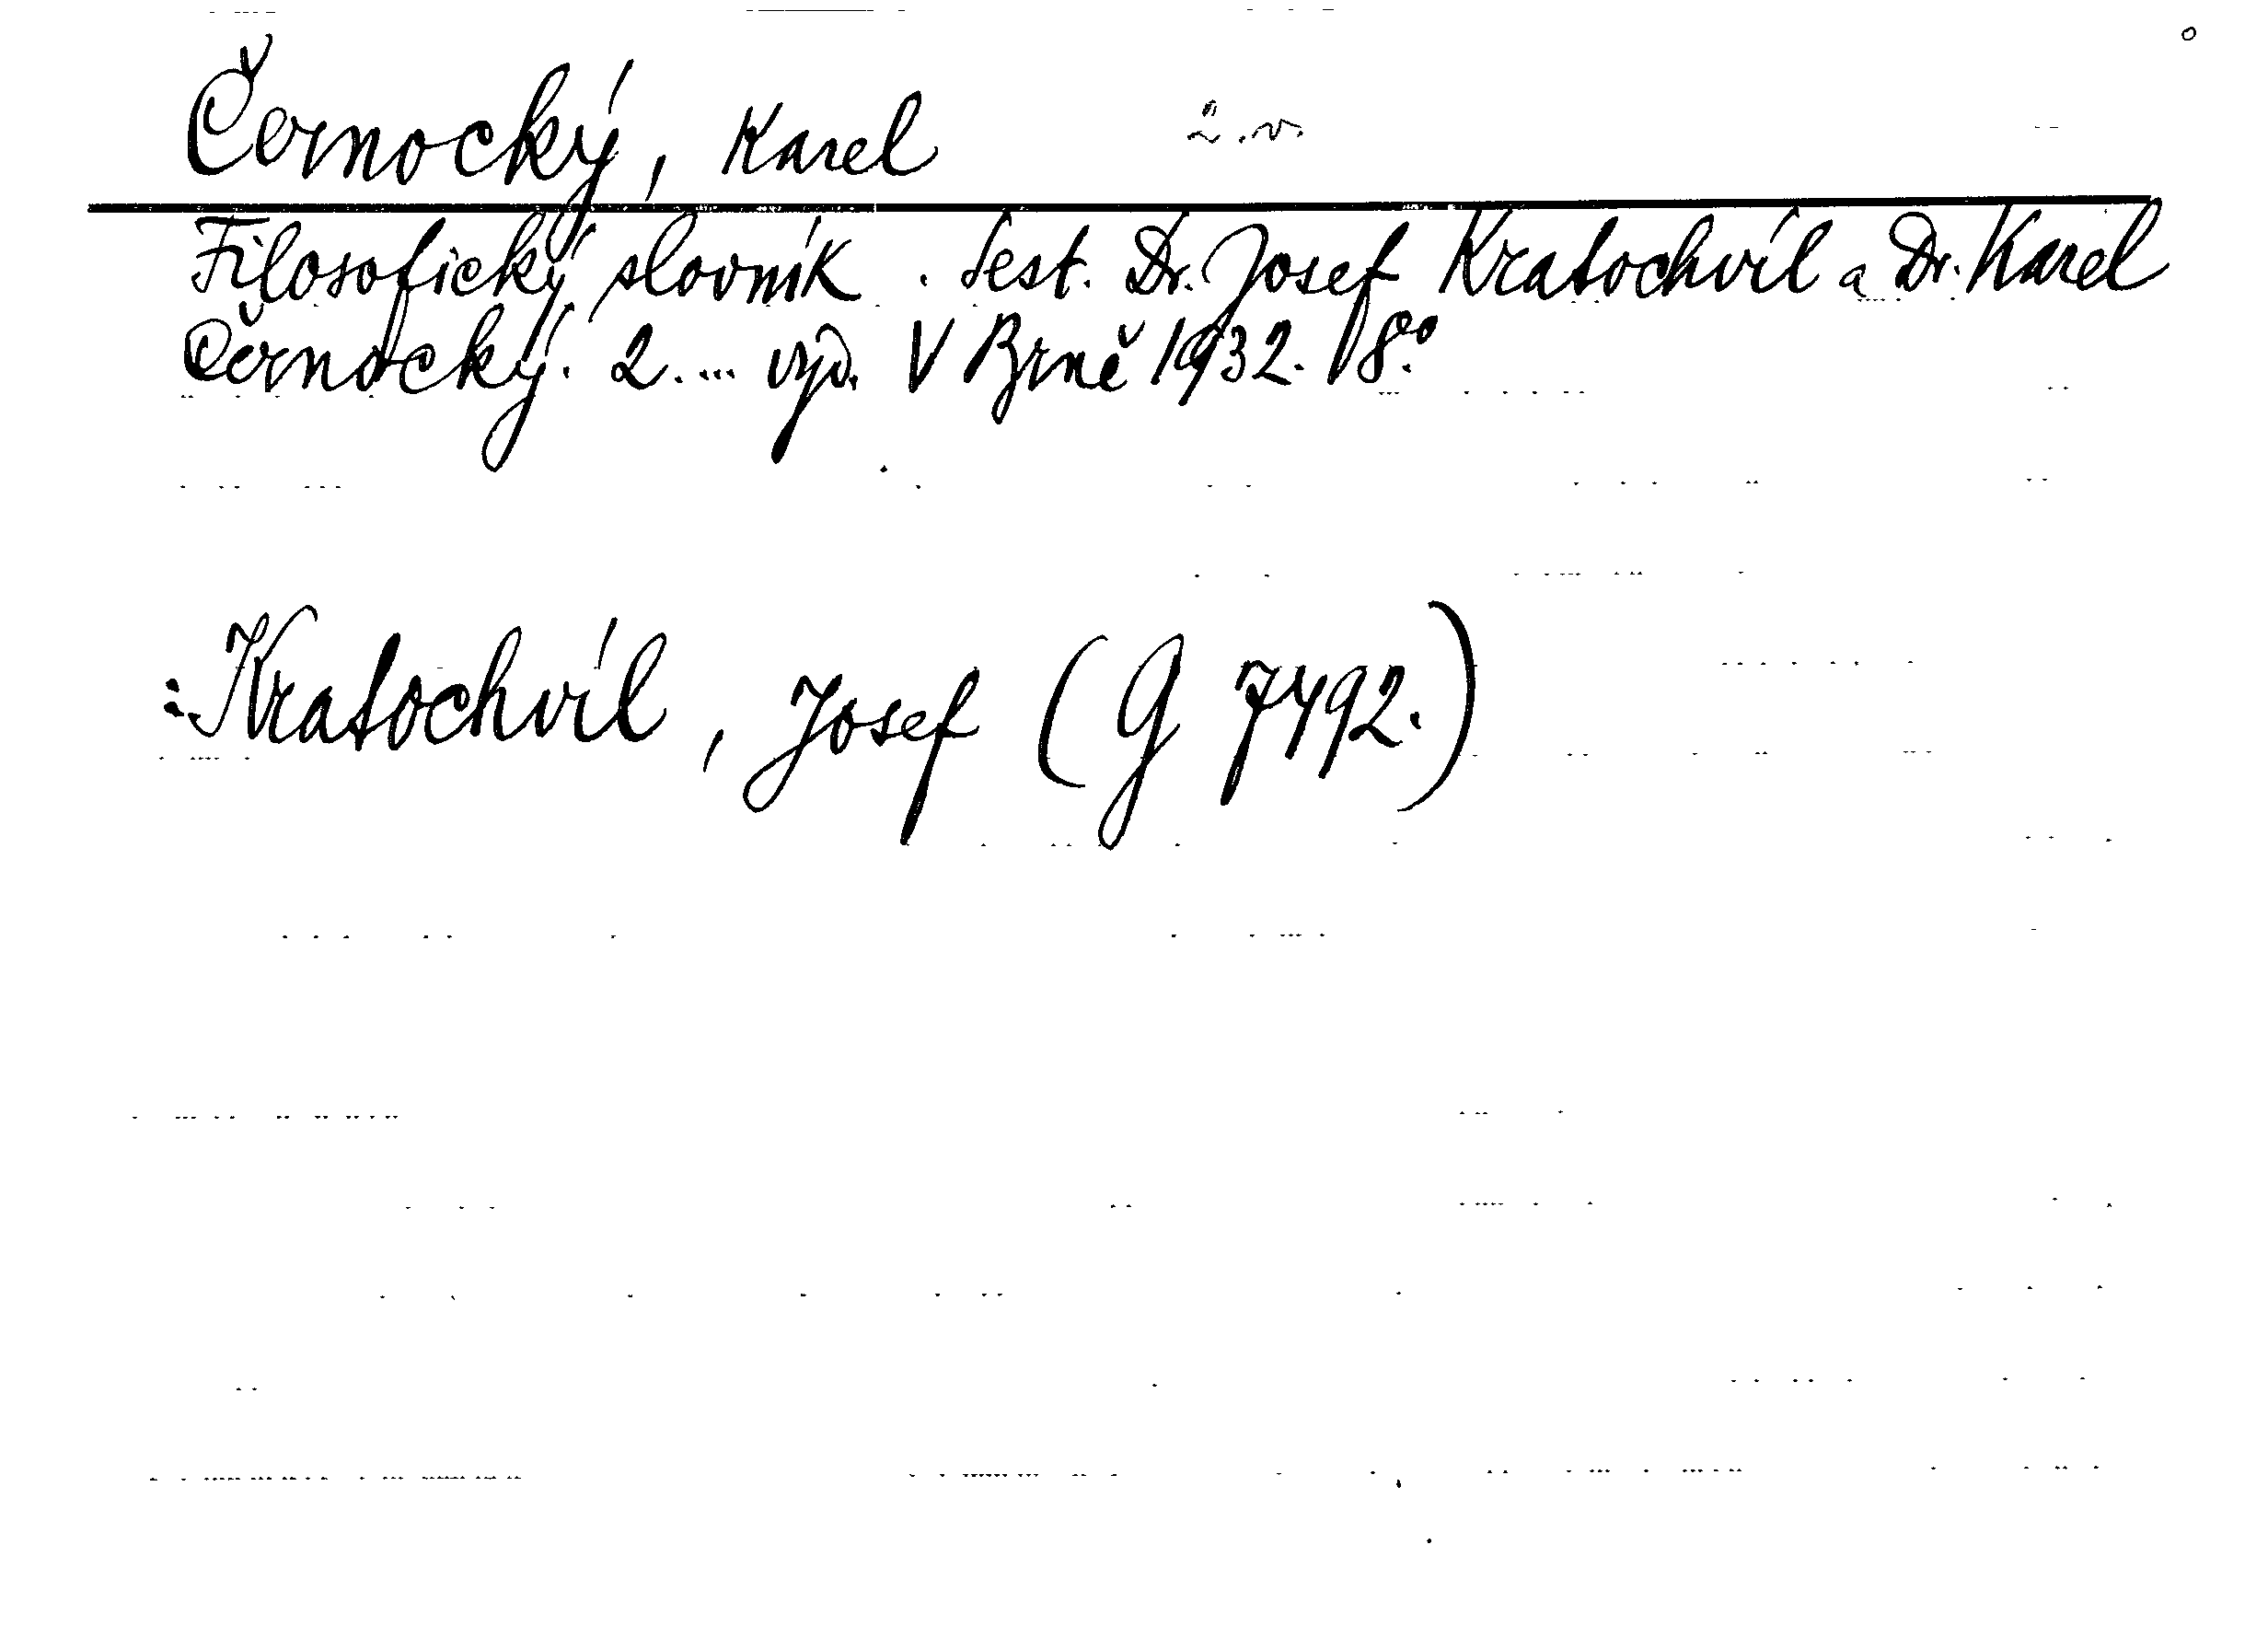 Černocký, Karel 2.v.
Filosofický slovník. Sest. Dr. Josef Kratochvíl a Dr. Karel
Černocký. 2. ... vyd. V Brně 1932. 8.°
:Kratochvíl, Josef (G 7492.)